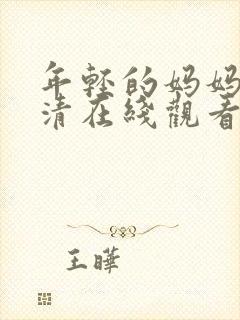 年輕的媽媽
清在綫觀看
王曄